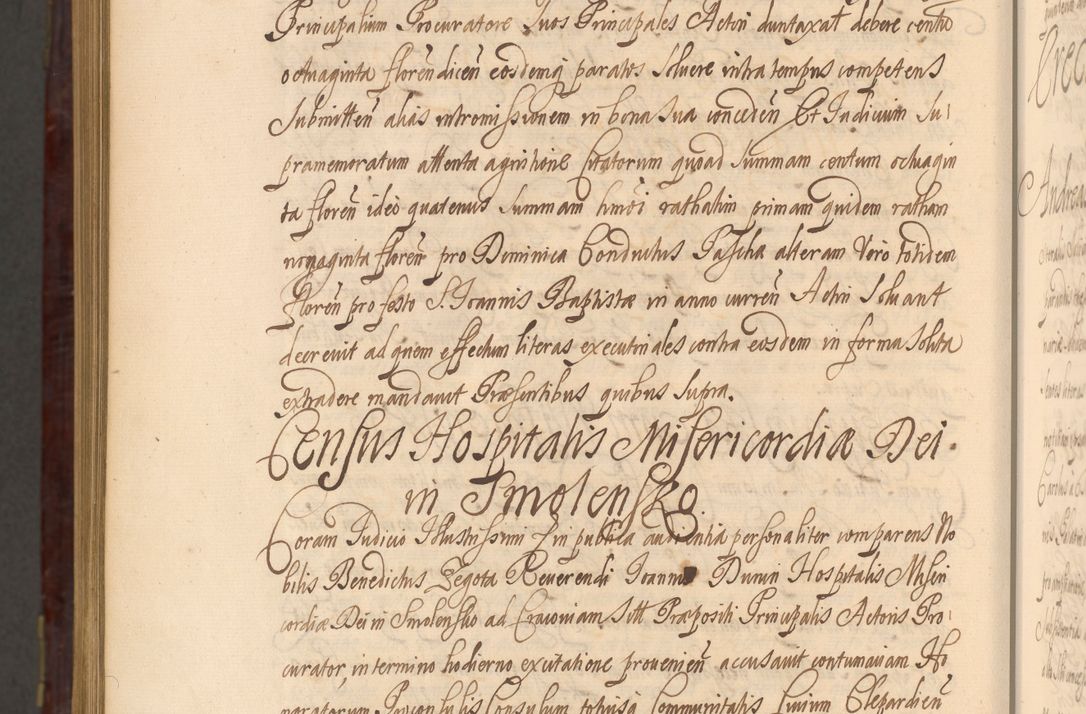 Principalium Procuratore Suos Principales Actori duntaxat debere centū
octuaginta floren̄ dicen̄ eosdemq paratos Solvere intra tempus competens
Submitten̄ alias intromissionem in bona Sua conceden̄ Et Iudicium Su
pramemoratum attenta agnitione Citatorum quoad Summam centum octuagin
ta floren̄ ideo quatenus Summam hmōi rathatim primam quidem ratham
nonaginta floren̄ pro Dominica Conductus Pascha alteram Vero totidem
floren̄ pro festo S. Ioannis Baptistæ in anno curren̄ Actori Solvant
decrevit ad quem effectum literas executoriales contra eosdem in forma Solita
extradere mandavit Præsentibus quibus Supra.
Census Hospitalis Misericordiæ Dei
in Smolensko
Coram Iudicio Illustrissimi in publica audientia personaliter comparens No
bilis Benedictus Zegota Reverendi Ioannis Dunin Hospitalis Miseri
cordiæ Dei in Smolensko ad Cracoviam Sitt Præpositi Principalis Actoris Pro
curator, in termino hodierno ex citatione provenien̄ accusavit contumaciam Ho
noratorum Proconsulis Consulum totiusq Communitatis Civium Clepardien̄